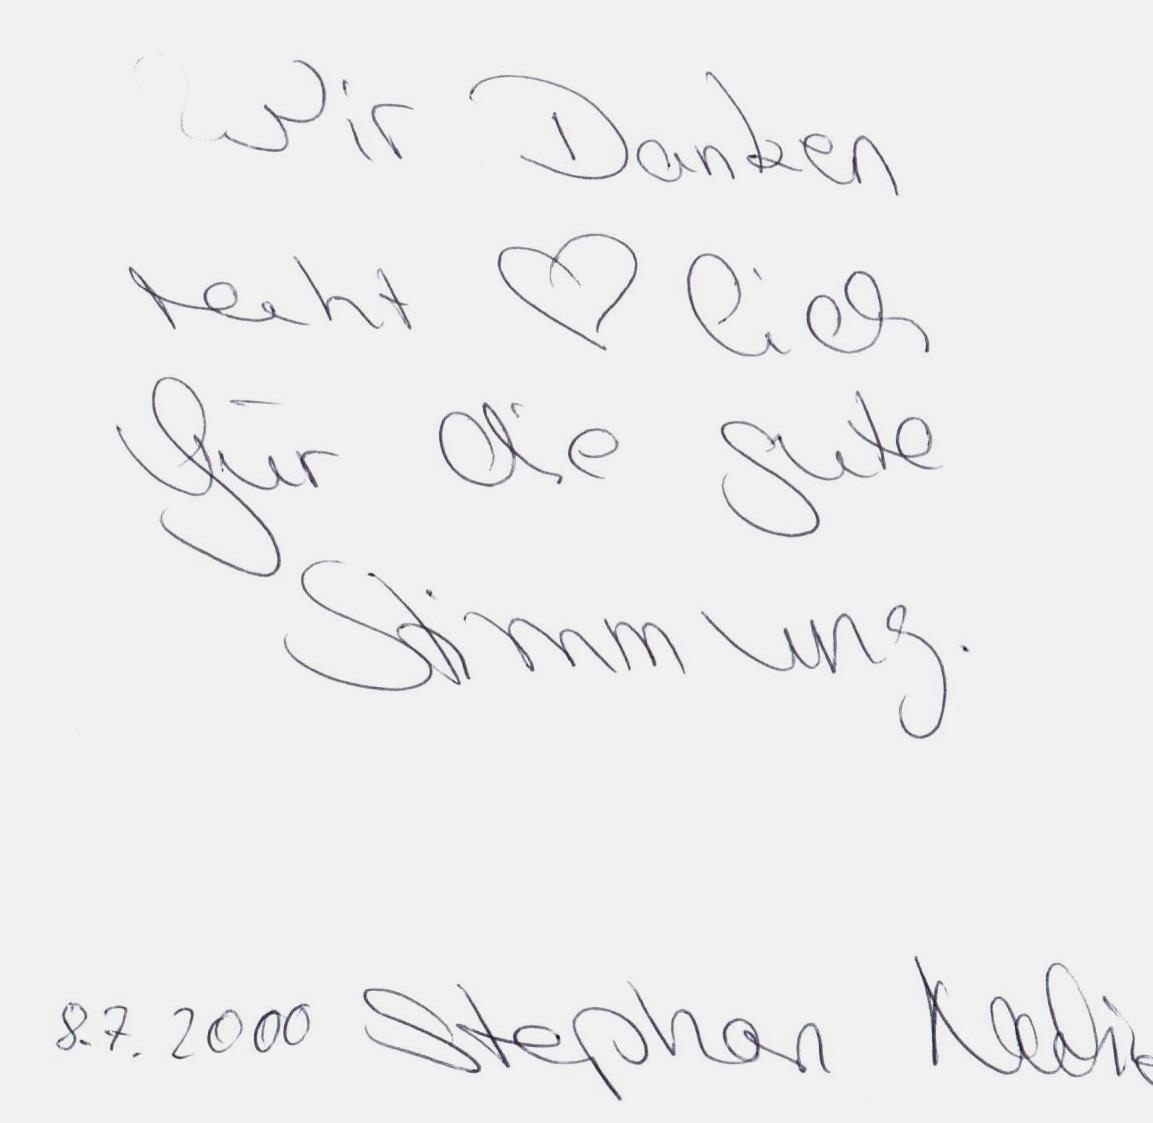 Wir Danken
recht ♡ lich
für die gute
Stimmung.
8.7.2000 Stephan